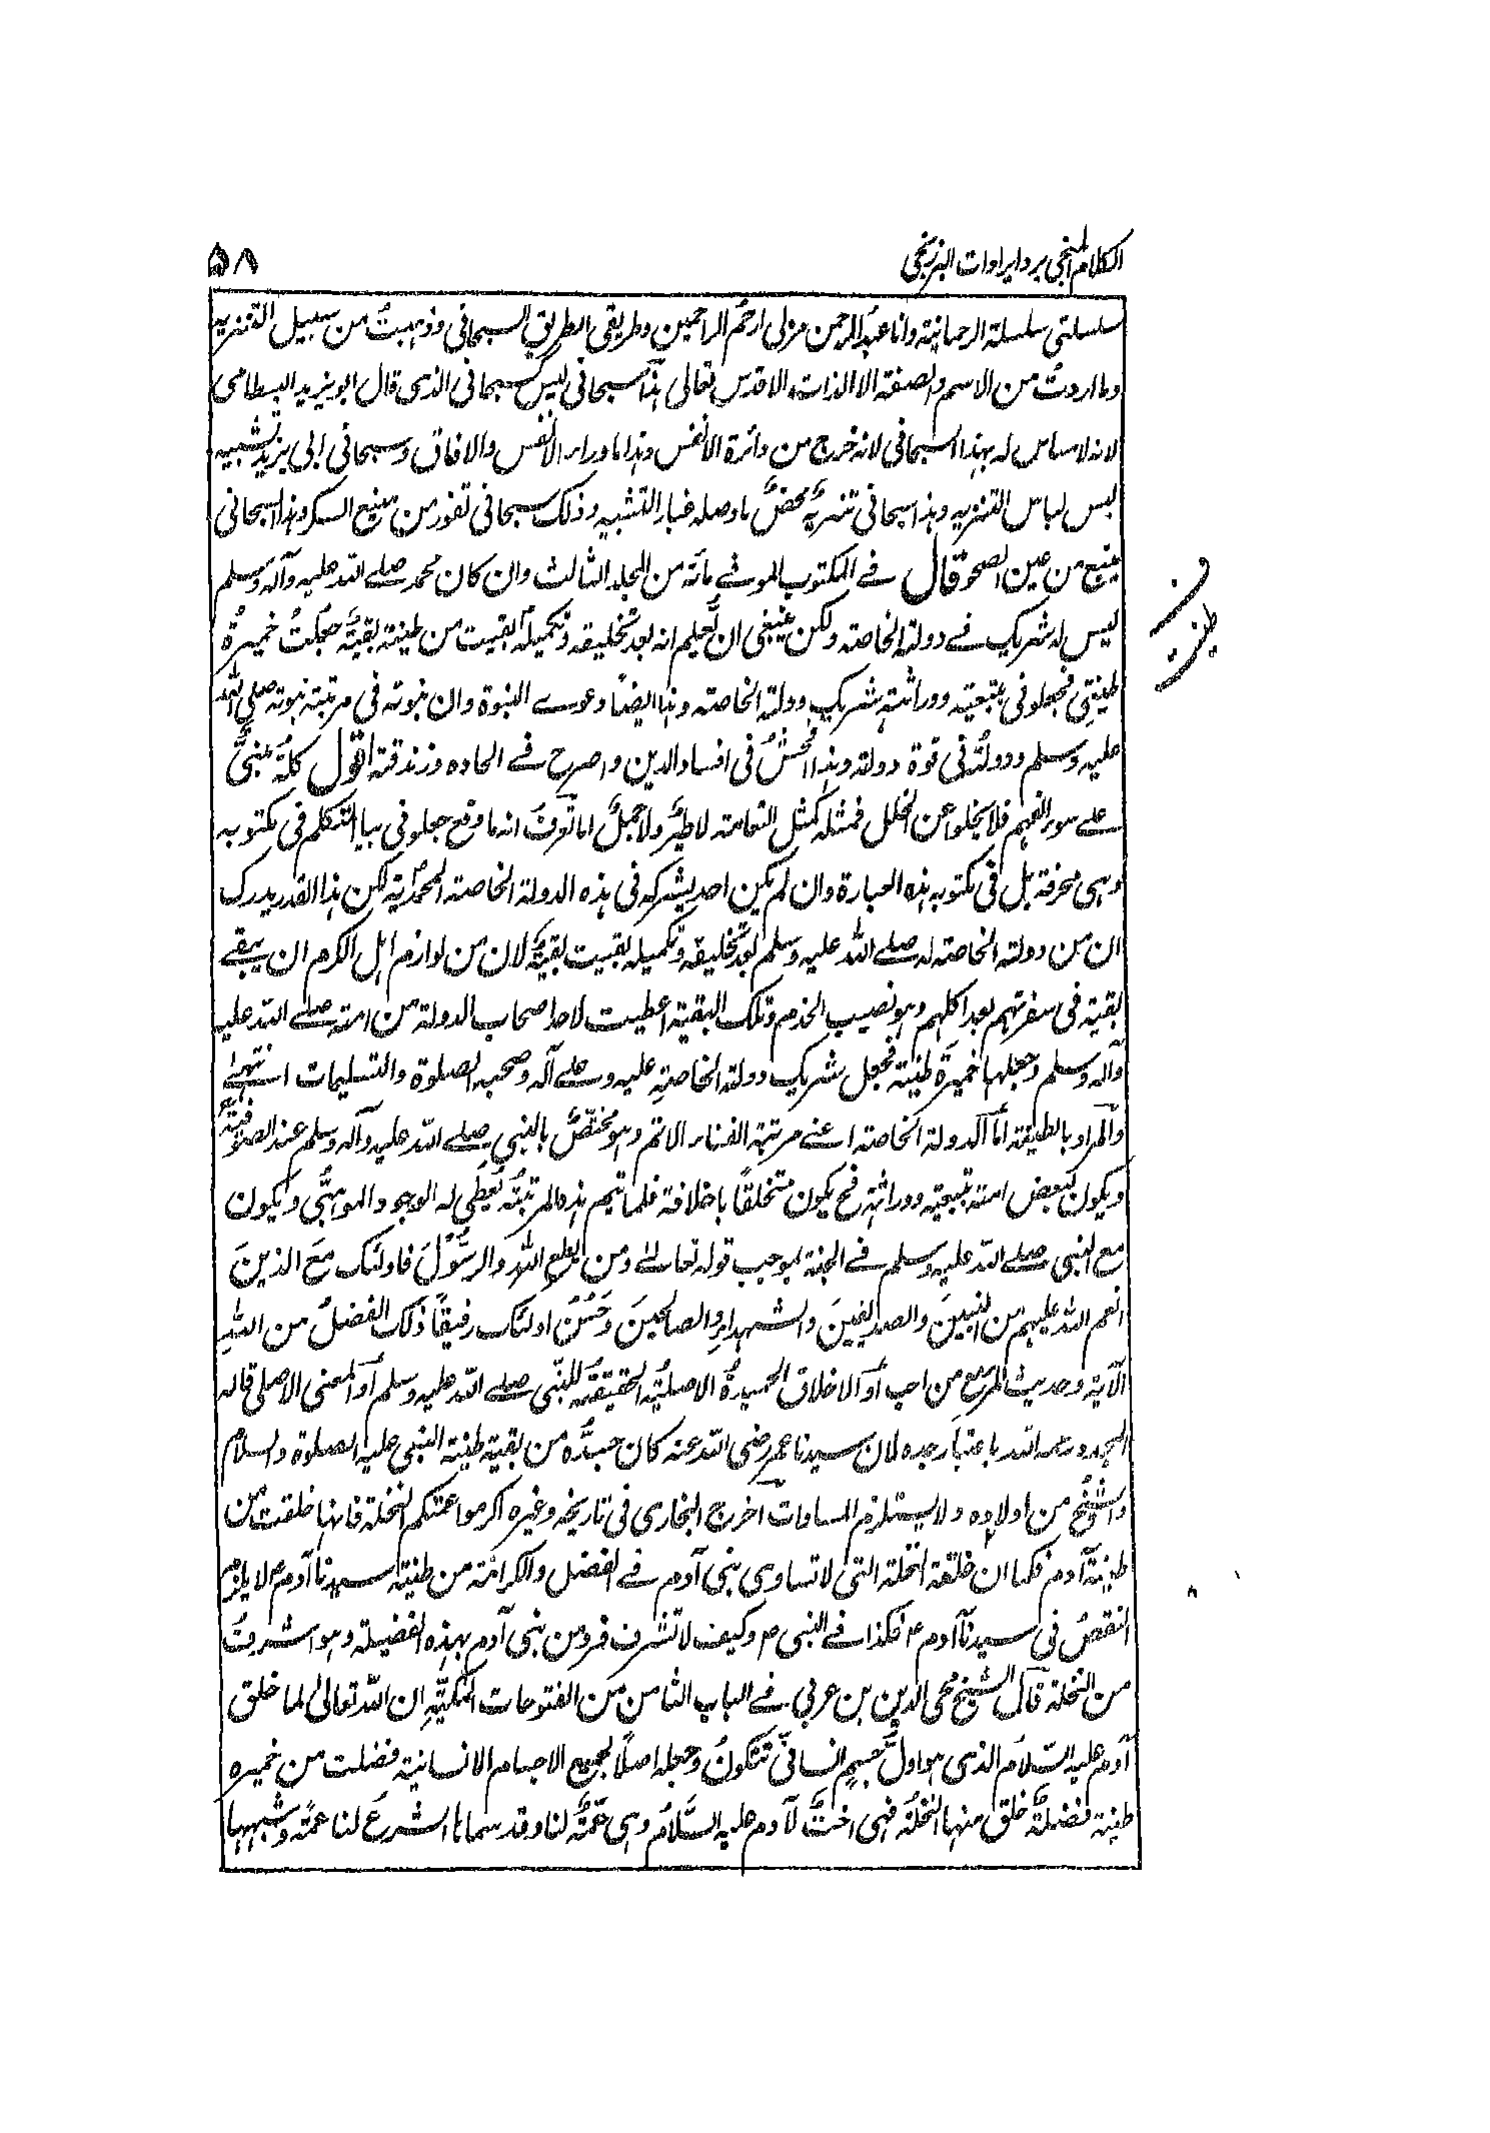 الكلام المنجي برد ايرادات البرزنجي
۵۸
سلسلتى سلسلة الرحمانية وانا عبد الرحمن منزلى ارحم الراحمين وطريقى الطريق السبحانى وذهبت من سبيل التنزيه
وما اردت من الاسم والصفة الا الذات الاقدس تعالى هذا سبحانى ليس كسبحانى الذى قال ابو يزيد البسطامى
لانه لا مساس له بهذا السبحانى لانه خرج من دائرة الانفس وهذا ما وراء الانفس والافاق وسبحانى ابى يزيد تشبيه
لبس لباس التنزيه وهذا سبحانى تنزيه محض ما وصله غبار التشبيه وذلك سبحانى تفور من منبع السكر وهذا سبحانى
ينبع من عين الصحو قال فى المكتوب الموفى مائة من الجلد الثالث وان كان محمد صلے الله عليه وآله وسلم
ليس له شريك فے دولته الخاصة ولكن ينبغى ان تعلم انه بعد تخليقه وتكميله بقيت من طينة بقية جعلت خميرة
طينتى فجعلونى بتبعيته ووراثته شريك دولته الخاصة وهذا ايضا دعوے النبوة وان نبوته فى مرتبة نبوته صلى الله
عليه وسلم ودولته فى قوة دولته وهذا افحش فى افساد الدين واصرح فے الحاده وزندقته اقول كله مبنى
علے سوء الفهم فلا يخلوا عن الخلل فمثله كمثل النعامة لا طير ولا جمل اما تعرف انه ما وقع جعلونى بياء التكلم فى مكتوبه
وهى محرفة بل فى مكتوبه هذه العبارة وان لم يكن احد يشركه فى هذه الدولة الخاصة المحمدية لكن هذا القدر يدرك
ان من دولته الخاصة له صلے الله عليه وسلم بعد تخليقه وتكميله بقيت بقية لان من لوازم اهل الكرم ان يبقے
بقية فى سفرتهم بعد اكلهم وهو نصيب الخدم وتلك البقية اعطيت لاحد اصحاب الدولة من امته صلے الله عليه
وآله وسلم وجعلها خميرة طينته فجعل شريك دولته الخاصة عليه وعلے آله وصحبه الصلوة والتسليمات انتهے
والمراد بالطينة اما الدولة الخاصة اعنے مرتبة الفناء الاتم وهو مختص بالنبى صلے الله عليه وآله وسلم عند الصوفية
ويكون لبعض امته بتبعيته ووراثته فح يكون متخلقا باخلاقة فلما تتم هذه المرتبة يعطى له الوجود الموهبى ويكون
مع النبى صلے الله عليه وسلم فے الجنة بموجب قوله تعالے ومن يطع الله والرسول فاولئك مع الذين
انعم الله عليهم من النبيين والصديقين والشهداء والصالحين وحسن اولئك رفيقا ذلك الفضل من الله
الآية وحديث المرء مع من احب او الاخلاق الحميدة الاصلية الحقيقة للنبى صلے الله عليه وسلم او المعنى الاصلى قاله
المجدد رحمه الله باعتبار جده لان سيدنا عمر رضى الله عنه كان جسده من بقية طينة النبى عليه الصلوة والسلام
والشيخ من اولاده ولا يستلزم المساوات اخرج البخارى فى تاريخه وغيره اكرموا عمتكم النخلة فانها خلقت من
طينة آدم فكما ان خلقة النخلة التى لا تساوى بنى آدم فے الفضل والكرامة من طينة سيدنا آدم ؑ لا يلزم
النقص فى سيدنا آدم ؑ فكذا فے النبى ؐ وكيف لا تشرف فرد من بنى آدم بهذه الفضيلة وهو اشرف
من النخلة قال الشيخ محى الدين بن عربي فے الباب الثامن من الفتوحات المكية ان الله تعالى لما خلق
آدم عليه السلام الذى هو اول جسم انسانى تتكون وجعله اصلا لجميع الاجسام الانسانية فضلت من خميرة
طينة فضلة خلق منها النخلة فهى اخت لآدم عليه السلام وهى عمة لنا وقد سماها الشرع لنا عمة وشبهها